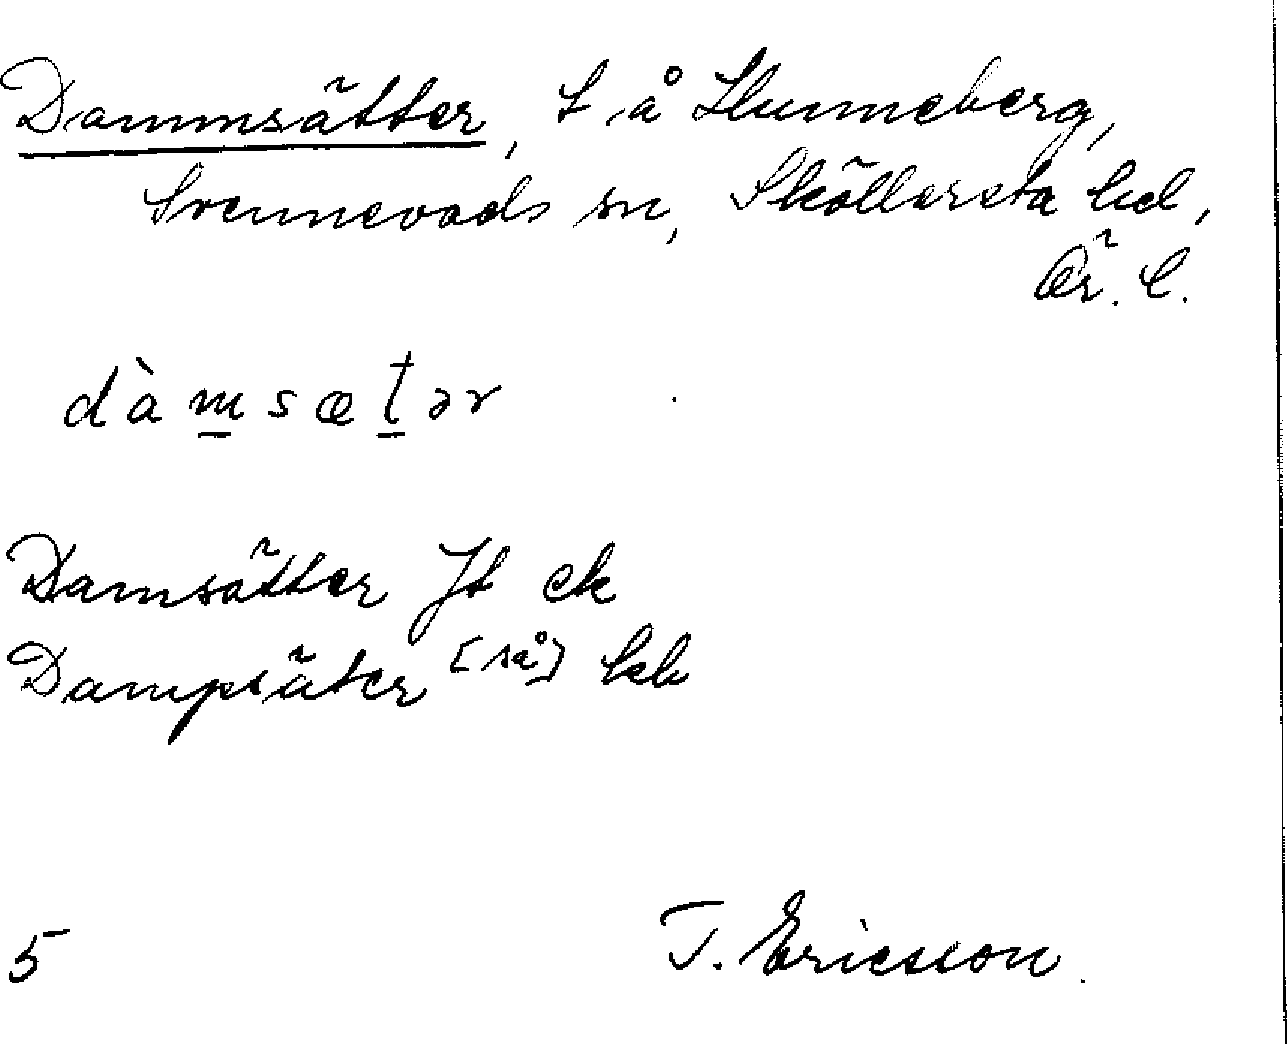 Dammsätter, t å Hunneberg,
Svennevads sn, Sköllersta hd,
Ör. l.
dàm̲sæt̲ər
Damsätter Jt ek
Dampsäter [så] hk
5
T. Ericsson.